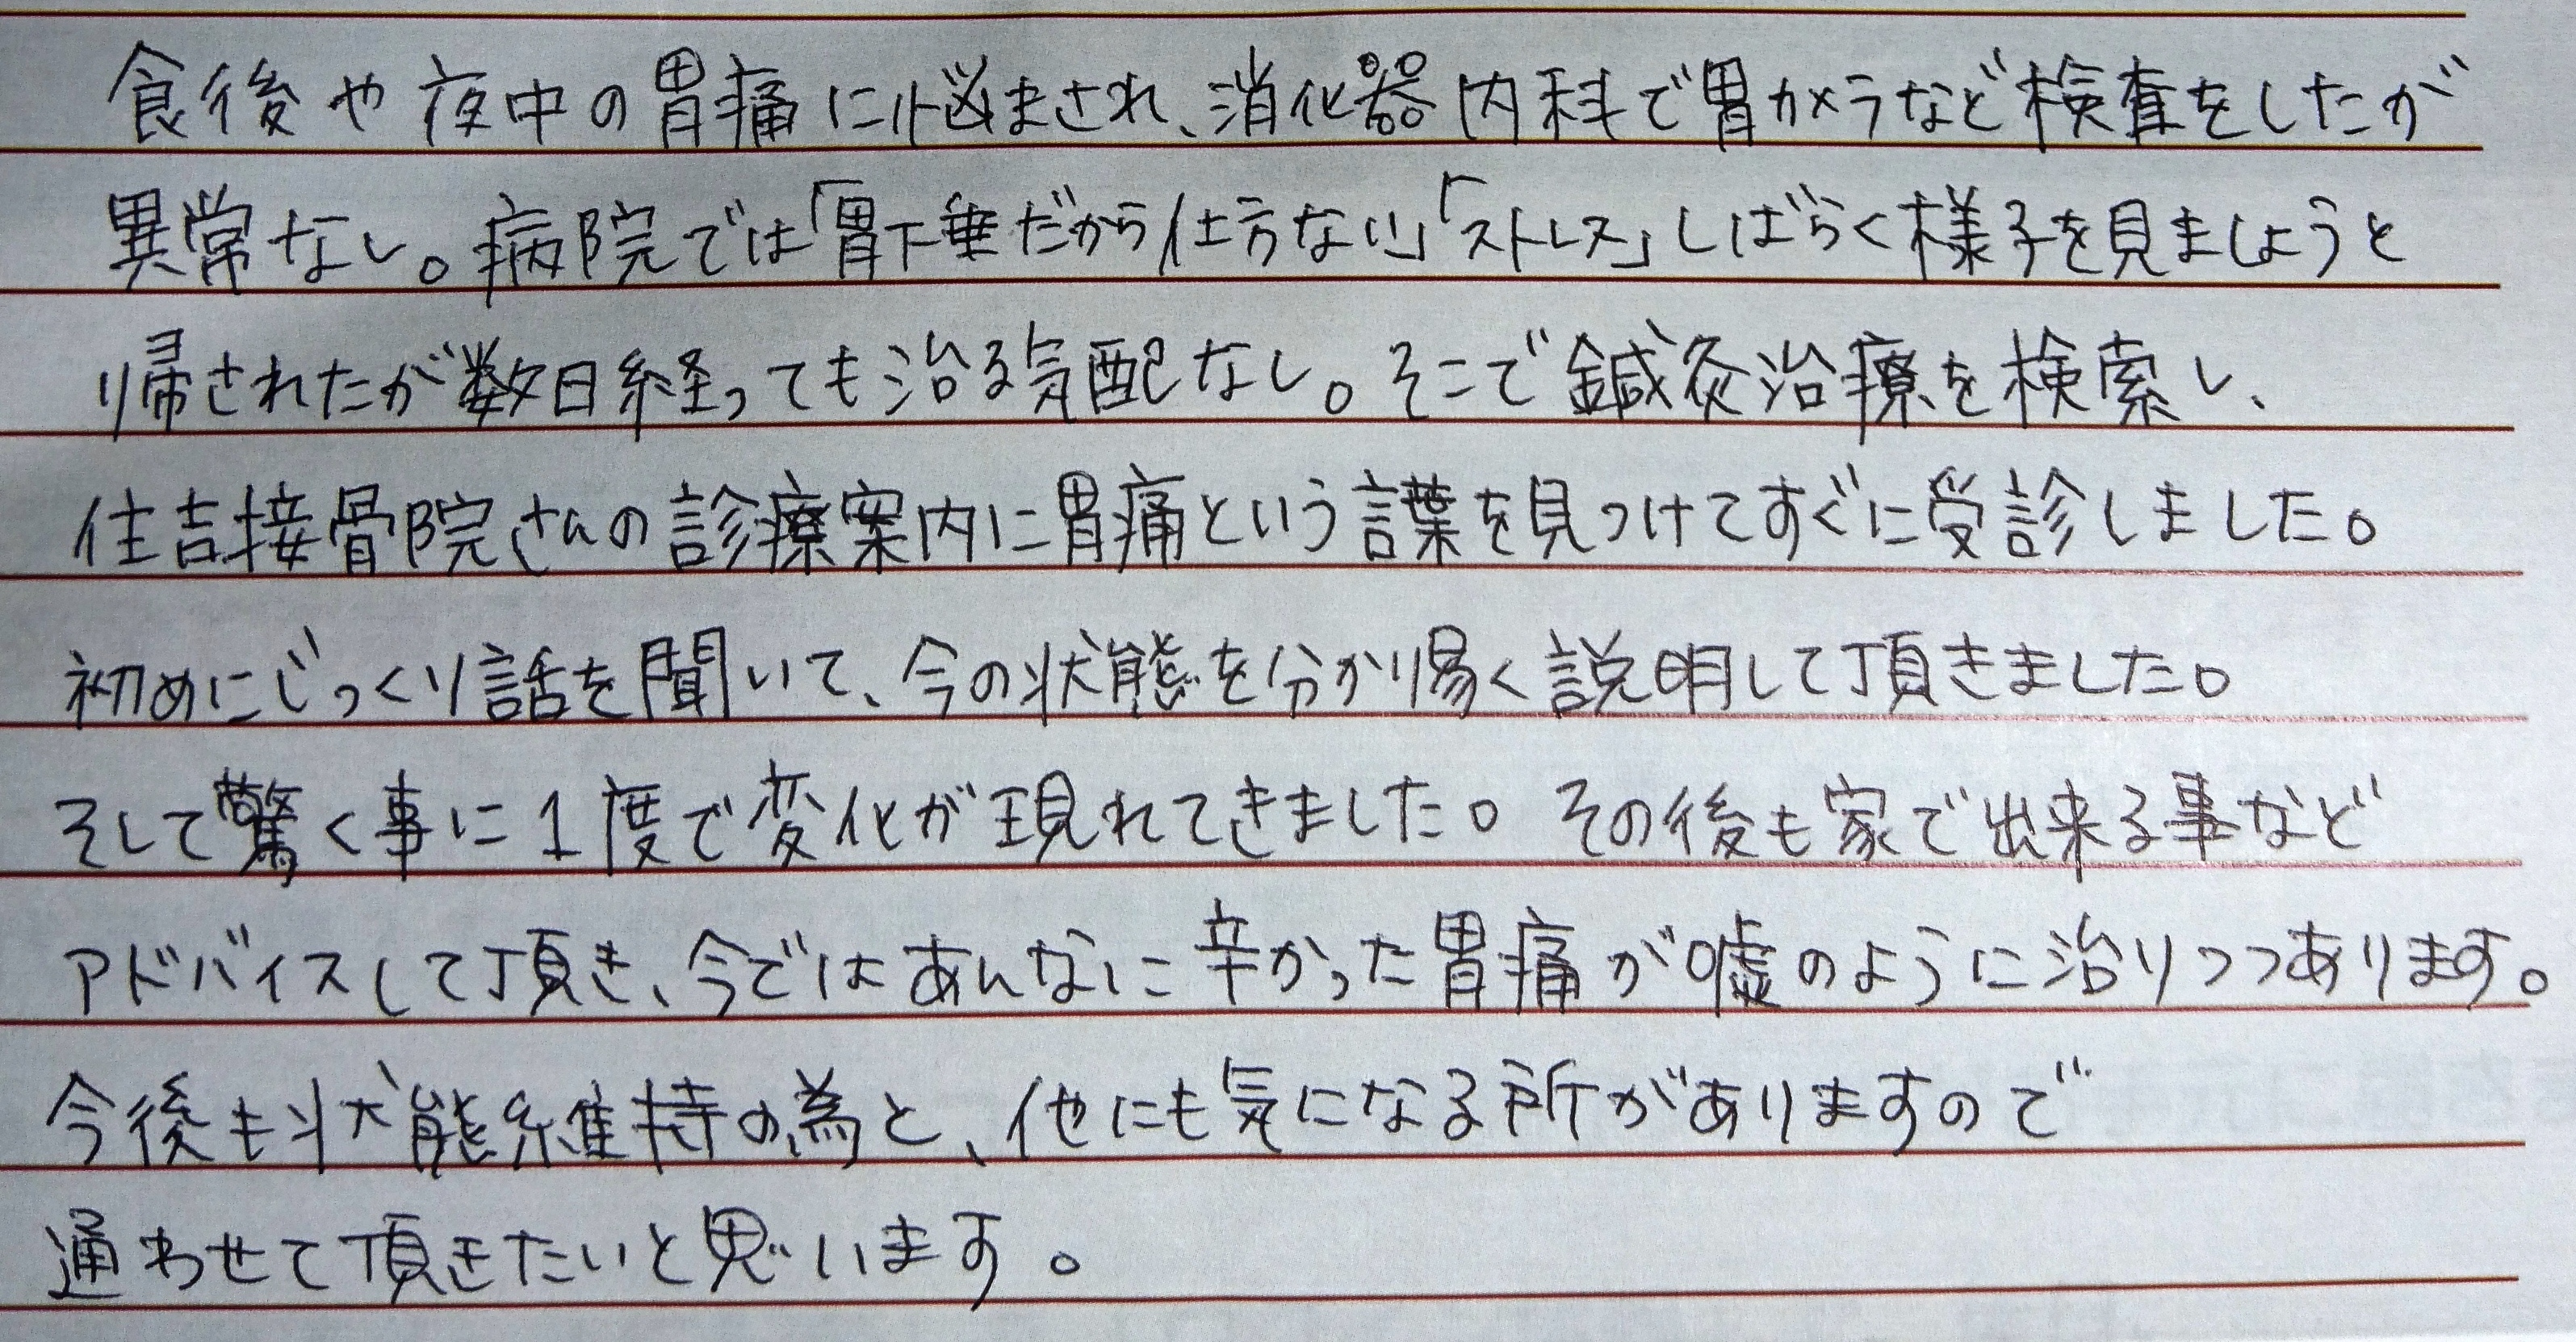 食後や夜中の胃痛に悩まされ、消化器内科で胃カメラなど検査をしたが
異常なし。病院では「胃下垂だから仕方ない」「ストレス」しばらく様子を見ましょうと
帰されたが数日経っても治る気配なし。そこで鍼灸治療を検索し、
住吉接骨院さんの診療案内に胃痛という言葉を見つけてすぐに受診しました。
初めにじっくり話を聞いて、今の状態を分かり易く説明して頂きました。
そして驚く事に1度で変化が現れてきました。その後も家で出来る事など
アドバイスして頂き、今ではあんなに辛かった胃痛が嘘のように治りつつあります。
今後も状態維持の為と、他にも気になる所がありますので
通わせて頂きたいと思います。